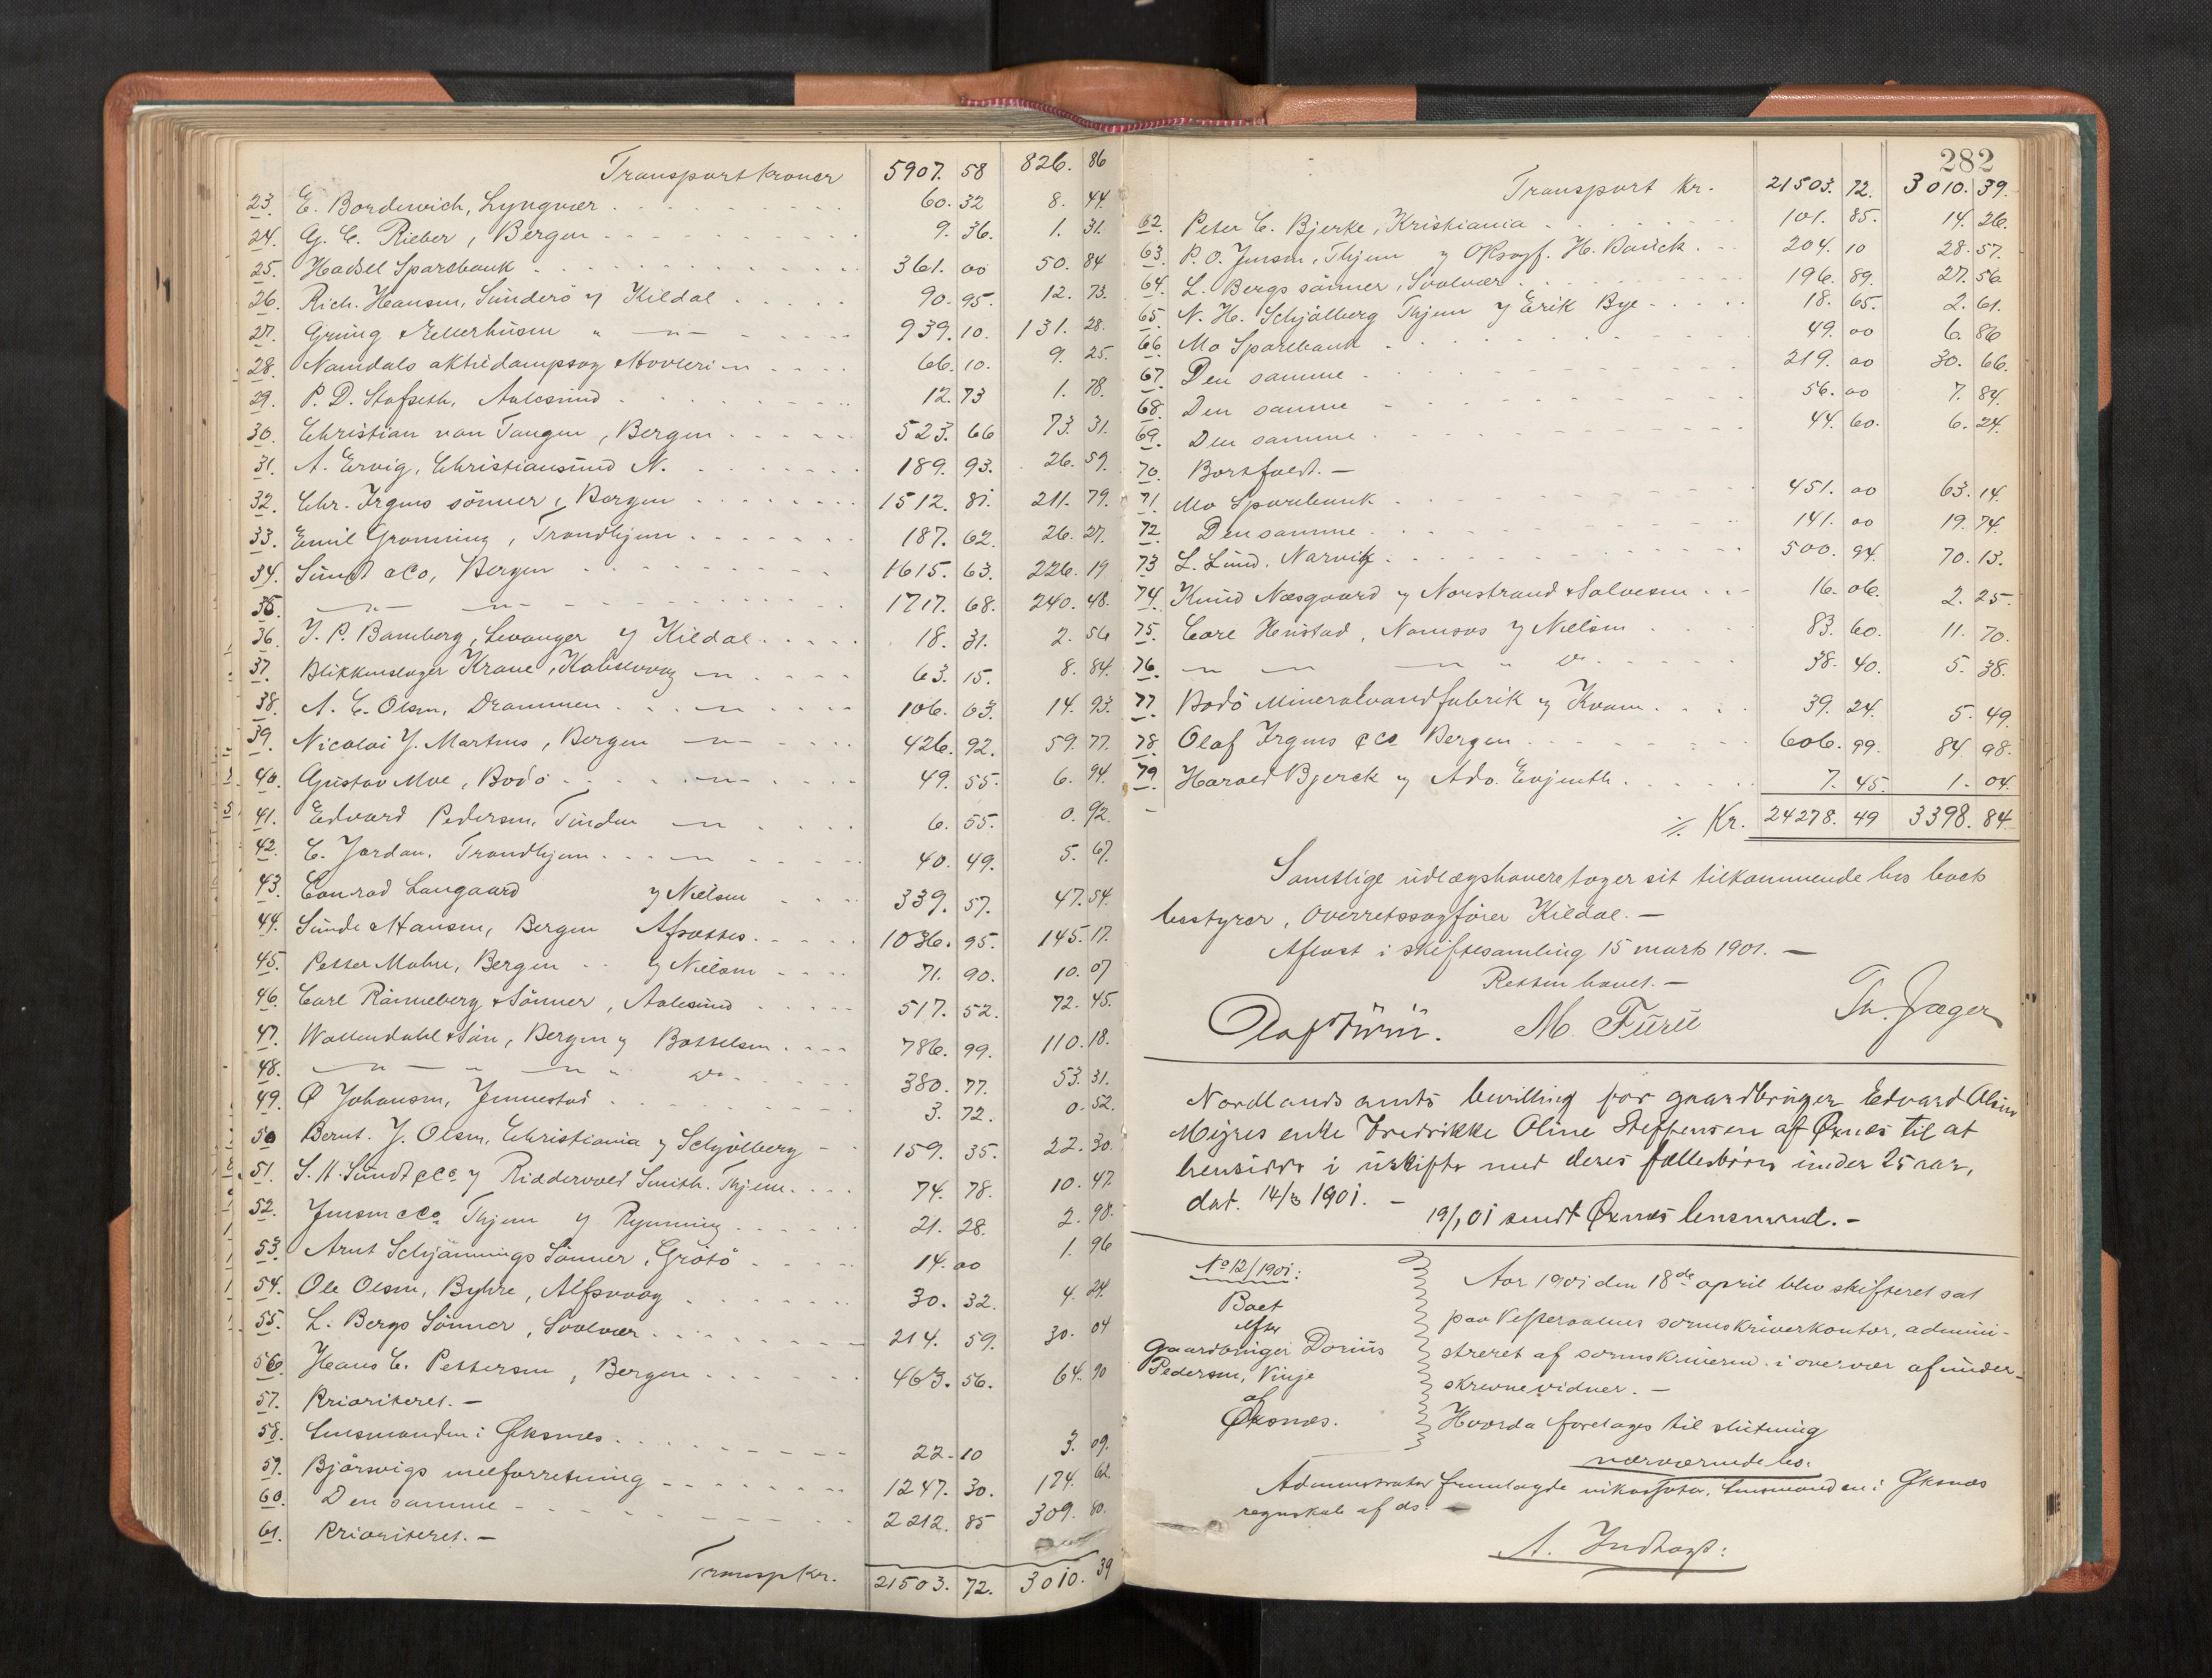 Transport kroner 5907. 58 826. 86
23. E. Bordewich, Lyngvær 60. 32 8. 44
24. G. C. Rieber, Bergen 9. 36. 1. 31.
25. Hadsel Sparebank 361. 00 50. 84
26. Rich. Hansen, Sünderö v/ Kildal 90. 95. 12. 73.
27. Grung & Ellerhusen " —"— 939. 10. 131. 28.
28. Namdals aktiedampsag & Hövleri —"— 66. 10. 9. 25.
29. P. D. Stafseth, Aalesund 12. 73 1. 78.
30. Christian von Tangen, Bergen 523. 66 73. 31.
31. A. Ervig, Christiansund N. 189. 93. 26. 59.
32. Chr. Irgens sönner, Bergen 1512. 81. 211. 79.
33. Emil Gronning, Trondhjem 187. 62. 26. 27.
34. Sundt & Co, Bergen 1615. 63. 226. 19
35. —"— —"— 1717. 68. 240. 48.
36. J. P. Bamberg, Levanger v/ Kildal 18. 31. 2. 56
37. Blikkenslager Krane, Kabelvaag —"— 63. 15. 8. 84.
38. A. C. Olsen, Drammen —"— 106. 63. 14. 93.
39. Nicolai J. Martens, Bergen —"— 426. 92. 59. 77.
40. Gustav Moe, Bodö —"— 49. 55. 6. 94.
41. Edvard Pedersen, Tinden —"— 6. 55. 0. 92.
42. C. Jordan, Trondhjem —"— 40. 49. 5. 67.
43. Conrad Langaard v/ Nielsen 339. 57. 47. 54.
44. Sunde & Hansen, Bergen Afsattes 1036. 95. 145. 17.
45. Petter Mohn, Bergen v/ Nielsen 71. 90. 10. 07
46. Carl Rönneberg & Sönner, Aalesund 517. 52. 72. 45.
47. Wallendahl & Sön, Bergen v/ Bottelsen 786. 99. 110. 18.
48. —"— " —"— " do 380. 77. 53. 31.
49. O Johansen, Jennestad 3. 72. 0. 52.
50 Bernt. J. Olsen, Christiania v/ Schjölberg 159. 35. 22. 30.
51. S. H. Sundt & Co v/ Riddervold Smith. Thjem. 74. 78. 10. 47.
52. Jensen & Co Thjem v/ Rynning 21. 28. 2. 98.
53. Arnt Schjönnings Sönner, Grötö 14. 00 1. 96
54. Ole Olsen, Byhre, Alfsvaag 30. 32. 4. 24.
55. L. Bergs Sönner, Svolvær 214. 59. 30. 04
56. Hans C. Pettersen, Bergen 463. 56. 64. 90
57. Prioriteret. —
58. Lensmanden i Øksnes 22. 10 3. 09.
59. Björsvigs melforretning 1247. 30. 174. 62.
60. Den samme 2212. 85 309. 80.
61. Prioriteret. —
Transp kr. 21503. 72. 3010. 39
282
Transport Kr. 21503. 72. 3010. 39.
62. Peter C. Bjerke, Kristiania 101. 85. 14. 26.
63. P. O. Jensen, Thjem v/ ORsagf. H. Barick 204. 10 28. 57.
64. L. Bergs sönner, Svolvær 196. 89. 27. 56
65. N. H. Schjölberg Thjem v/ Erik Bye 18. 65. 2. 61.
66 Mo Sparebank 49. 00 6. 86
67. Den samme 219. 00 30. 66.
68. Den samme 56. 00 7. 84.
69. Den samme 44. 60. 6. 24.
70. Bortfaldt. —
71. Mo Sparebank 451. 00 63. 14.
72. Den samme 141. 00 19. 74.
73 L. Lund, Narvik 500. 94. 70. 13.
74. Knud Næsgaard v/ Norstrand & Salvesen 16. 06. 2. 25.
75. Carl Henstad, Namsos v/ Nielsen 83. 60. 11. 70.
76. —"— —"— —"— " do 38. 40. 5. 38.
77 Bodö Mineralvandfabrik v/ Kvam 39. 24. 5. 49.
78 Olaf Irgens & Co Bergen 606. 99. 84 98.
79. Harald Bjerck v/ Adv. Evjenth 7. 45. 1. 04.
Kr. 24278. 49 3398. 84.
Samtlige udlægshavere tager sit tilkommende hos bo-
bestyrer, overretssagförer Kildal. —
Aflæst i skiftesamling 15 marts 1901. —
Retten hævet. —
M. Furu Th. Jæger
Nordlands amts bevilling for gaardbruger Edvard Olsen
Meyres enke Fredrikke Oline Steffensen af Øxnæs til at
hensidde i uskifte med deres fællesbörn under 25 aar,
dat. 14/3 1901. — 19/, 01 sendt Øxnæs lensmand. —
No 12/1901:
Boet
efter
Gaardbruger Dorius
Pedersen, Vinje
af
Øksnæs.
Aar 1901 den 18de april blev skifteret sat
paa Vesteraalens sorenskriverkontor, admini-
streret af sorenskriveren i overvær af under-
skrevne vidner. —
Hvorda foretoges til slutning
nærværende bo.
Administrator fremlagde inkassator, lensmanden i Øksnæs
regnskab af ds.
A. Indtægt: